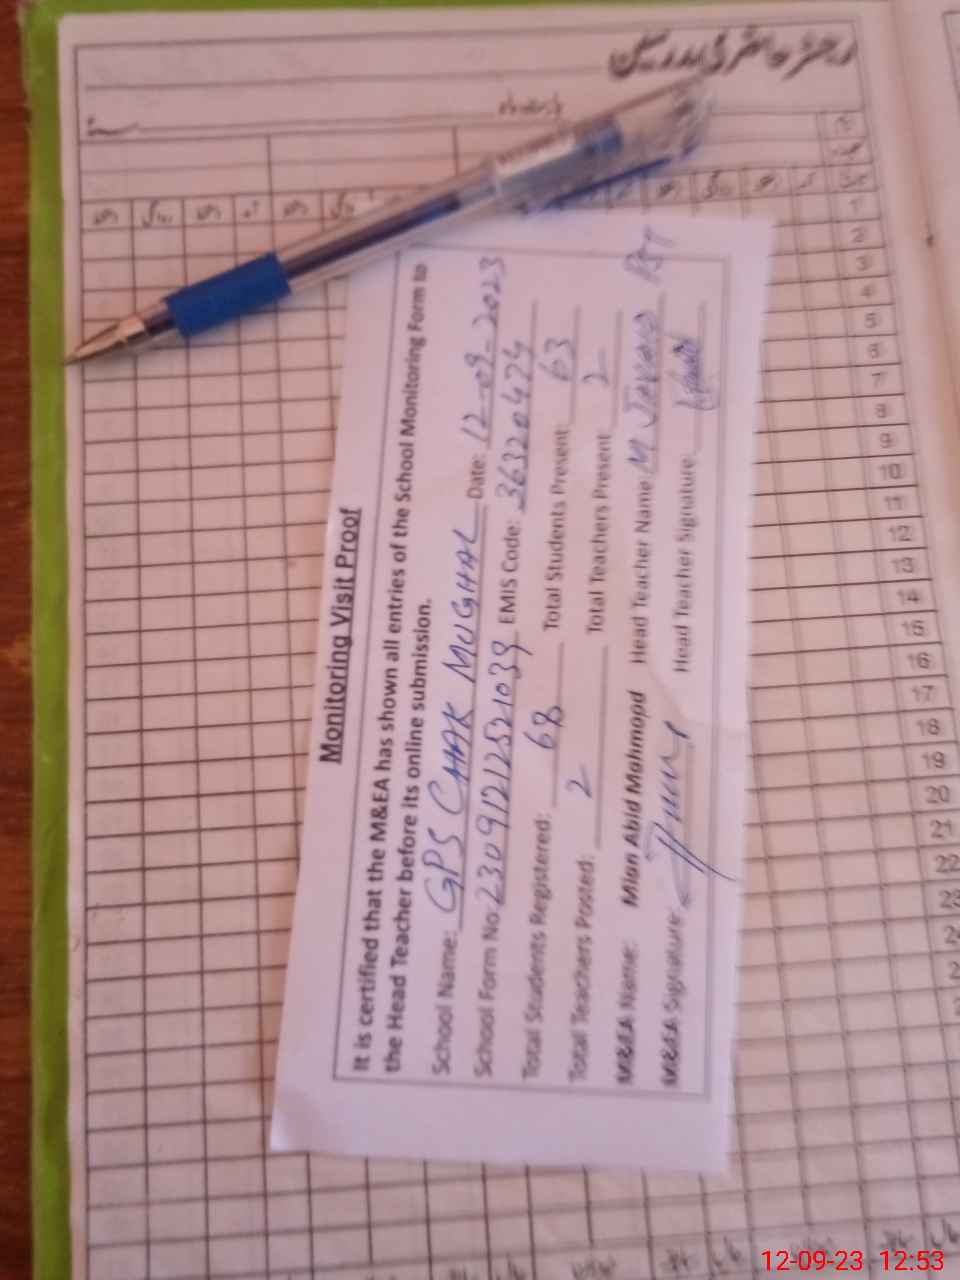 رجسٹر حاضری مدرسین
بابت ماہ
Monitoring Visit Proof
It is certified that the M&EA has shown all entries of the School Monitoring Form to
the Head Teacher before its online submission.
School Name: GPS CHAK MUGHAL Date: 12-09-2023
School Form No: 23091212521039 EMIS Code: 36320424
Total Students Registered: 68 Total Students Present: 63
Total Teachers Posted: 2 Total Teachers Present 2
M&EA Name: Mian Abid Mahmopd Head Teacher Name M Javaid PST
M&EA Signature: Head Teacher Signature:
1
2
3
4
5
6
7
8
9
10
11
12
13
14
15
16
17
18
19
20
21
22
23
12-09-23 12:53